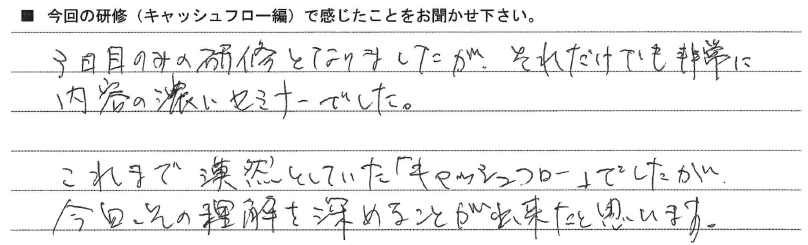 ■ 今回の研修（キャッシュフロー編）で感じたことをお聞かせ下さい。
3日目のみの研修となりましたが、それだけでも非常に
内容の濃いセミナーでした。
これまで漠然としていた「キャッシュフロー」でしたが、
今回、その理解を深めることが出来たと思います。